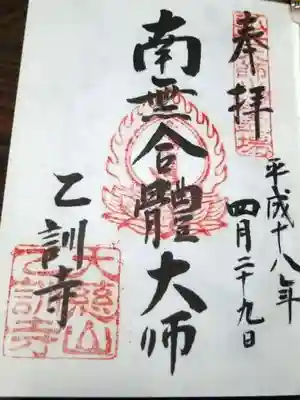 奉拝
平成十八年
四月二十九日
南無合體大师
乙訓寺
大慈山
乙訓寺